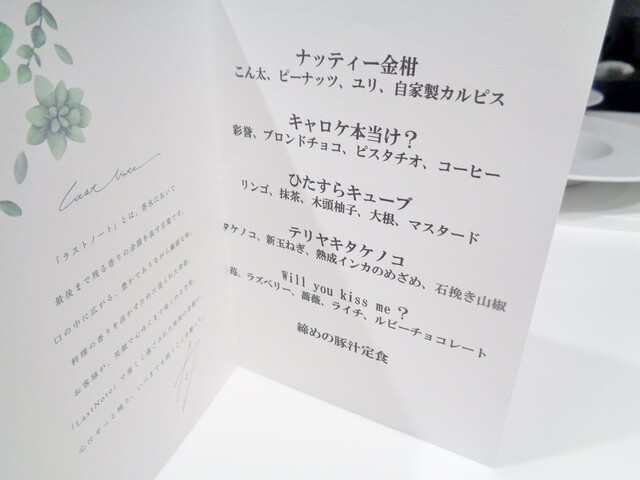 Last Note
「ラストノート」とは、香水において
最後まで残る香りの余韻を表す言葉です。
口の中に広がる、豊かでありながら繊細な味、
お客様が、笑顔で心ゆくまで
(LastNote)で楽しく過ごされた時間の余韻が、
心にそっと残り、いつまでも続くことを願って。
ナッティー金柑
こん太、ピーナッツ、ユリ、自家製カルピス
キャロケ本当け？
彩誉、ブロンドチョコ、ピスタチオ、コーヒー
ひたすらキューブ
リンゴ、抹茶、木頭柚子、大根、マスタード
テリヤキタケノコ
タケノコ、新玉ねぎ、熟成インカのめざめ、石挽き山椒
Will you kiss me？
苺、ラズベリー、薔薇、ライチ、ルビーチョコレート
締めの豚汁定食